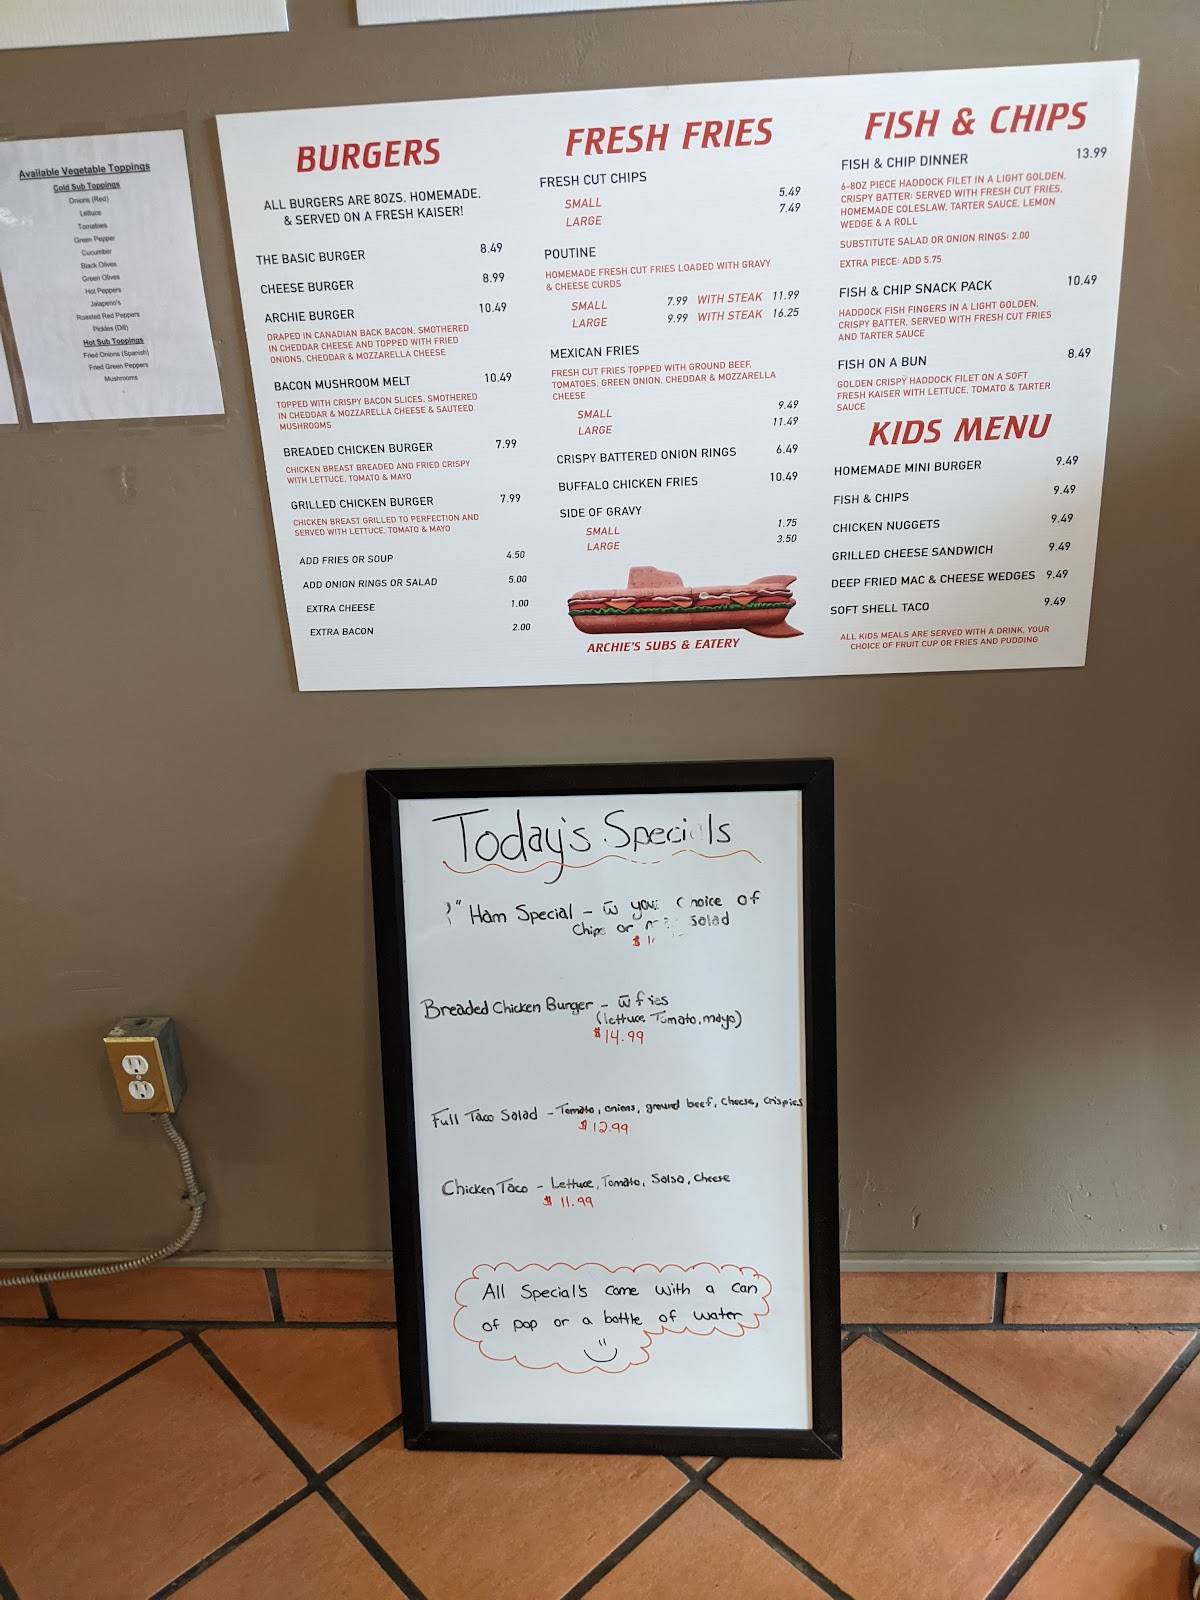 Available Vegetable Toppings
Cold Sub Toppings
Onions (Red)
Lettuce
Tomatoes
Green Pepper
Cucumber
Black Olives
Green Olives
Hot Peppers
Jalapeno's
Roasted Red Peppers
Pickles (Dill)
Hot Sub Toppings
Fried Onions (Spanish)
Fried Green Peppers
Mushrooms
BURGERS
ALL BURGERS ARE 8OZS, HOMEMADE,
& SERVED ON A FRESH KAISER!
THE BASIC BURGER 8.49
CHEESE BURGER 8.99
ARCHIE BURGER 10.49
DRAPED IN CANADIAN BACK BACON, SMOTHERED
IN CHEDDAR CHEESE AND TOPPED WITH FRIED
ONIONS, CHEDDAR & MOZZARELLA CHEESE
BACON MUSHROOM MELT 10.49
TOPPED WITH CRISPY BACON SLICES, SMOTHERED
IN CHEDDAR & MOZZARELLA CHEESE & SAUTEED
MUSHROOMS
BREADED CHICKEN BURGER 7.99
CHICKEN BREAST BREADED AND FRIED CRISPY
WITH LETTUCE, TOMATO & MAYO
GRILLED CHICKEN BURGER 7.99
CHICKEN BREAST GRILLED TO PERFECTION AND
SERVED WITH LETTUCE, TOMATO & MAYO
ADD FRIES OR SOUP 4.50
ADD ONION RINGS OR SALAD 5.00
EXTRA CHEESE 1.00
EXTRA BACON 2.00
FRESH FRIES
FRESH CUT CHIPS
SMALL 5.49
LARGE 7.49
POUTINE
HOMEMADE FRESH CUT FRIES LOADED WITH GRAVY
& CHEESE CURDS
SMALL 7.99 WITH STEAK 11.99
LARGE 9.99 WITH STEAK 16.25
MEXICAN FRIES
FRESH CUT FRIES TOPPED WITH GROUND BEEF,
TOMATOES, GREEN ONION, CHEDDAR & MOZZARELLA
CHEESE
SMALL 9.49
LARGE 11.49
CRISPY BATTERED ONION RINGS 6.49
BUFFALO CHICKEN FRIES 10.49
SIDE OF GRAVY
SMALL 1.75
LARGE 3.50
ARCHIE'S SUBS & EATERY
FISH & CHIPS
FISH & CHIP DINNER 13.99
6-8OZ PIECE HADDOCK FILET IN A LIGHT GOLDEN,
CRISPY BATTER; SERVED WITH FRESH CUT FRIES,
HOMEMADE COLESLAW, TARTER SAUCE, LEMON
WEDGE & A ROLL
SUBSTITUTE SALAD OR ONION RINGS: 2.00
EXTRA PIECE: ADD 5.75
FISH & CHIP SNACK PACK 10.49
HADDOCK FISH FINGERS IN A LIGHT GOLDEN,
CRISPY BATTER, SERVED WITH FRESH CUT FRIES
AND TARTER SAUCE
FISH ON A BUN 8.49
GOLDEN CRISPY HADDOCK FILET ON A SOFT
FRESH KAISER WITH LETTUCE, TOMATO & TARTER
SAUCE
KIDS MENU
HOMEMADE MINI BURGER 9.49
FISH & CHIPS 9.49
CHICKEN NUGGETS 9.49
GRILLED CHEESE SANDWICH 9.49
DEEP FRIED MAC & CHEESE WEDGES 9.49
SOFT SHELL TACO 9.49
ALL KIDS MEALS ARE SERVED WITH A DRINK, YOUR
CHOICE OF FRUIT CUP OR FRIES AND PUDDING
Today's Specials
Ham Special - w̅ your choice of
Chips or salad
Breaded Chicken Burger - w̅ fries
(lettuce, Tomato, mayo)
$14.99
Full Taco Salad - Tomato, onions, ground beef, cheese, crispies
$12.99
Chicken Taco - Lettuce, Tomato, Salsa, cheese
$11.99
All Special's come with a can
of pop or a bottle of water